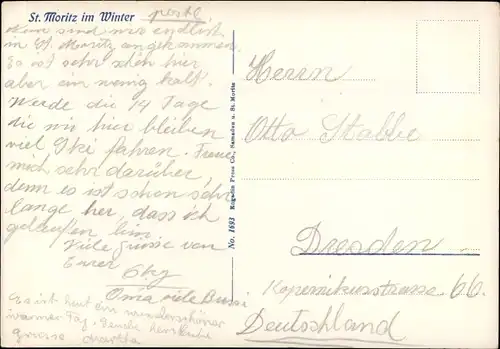 St. Moritz im Winter
Nun sind wir endlich
in St. Moritz angekommen.
Es ist sehr schön hier
aber ein wenig kalt.
Werde die 14 Tage
die wir hier bleiben
viel Ski fahren. Freue
mich sehr darüber,
denn es ist schon sehr
lange her, dass ich
gelaufen bin.
Viele Grüsse von
Eurer
Oma viele Bussi
Es ist heut ein wunderschöner
warmer Tag.
No. 1693 Engadin Press Co., Samaden u. St. Moritz
Herrn
Otto Stabbe
Dresden
Kopernikusstrasse 66.
Deutschland